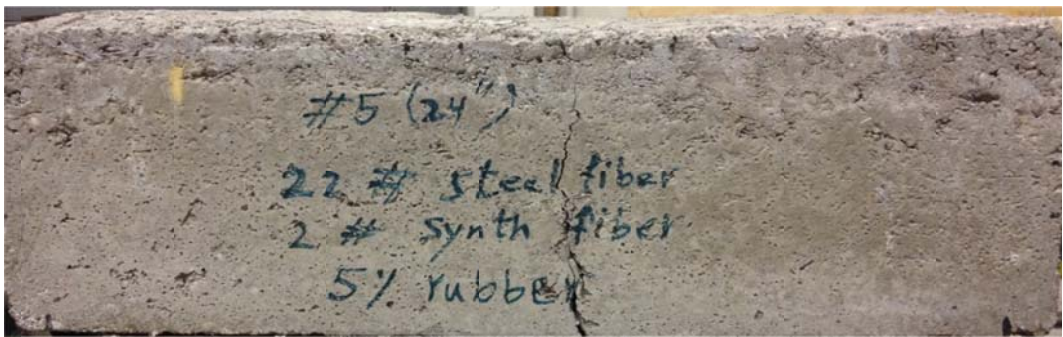 #5 (24")
22 # steel fiber
2 # synth fiber
5% rubber